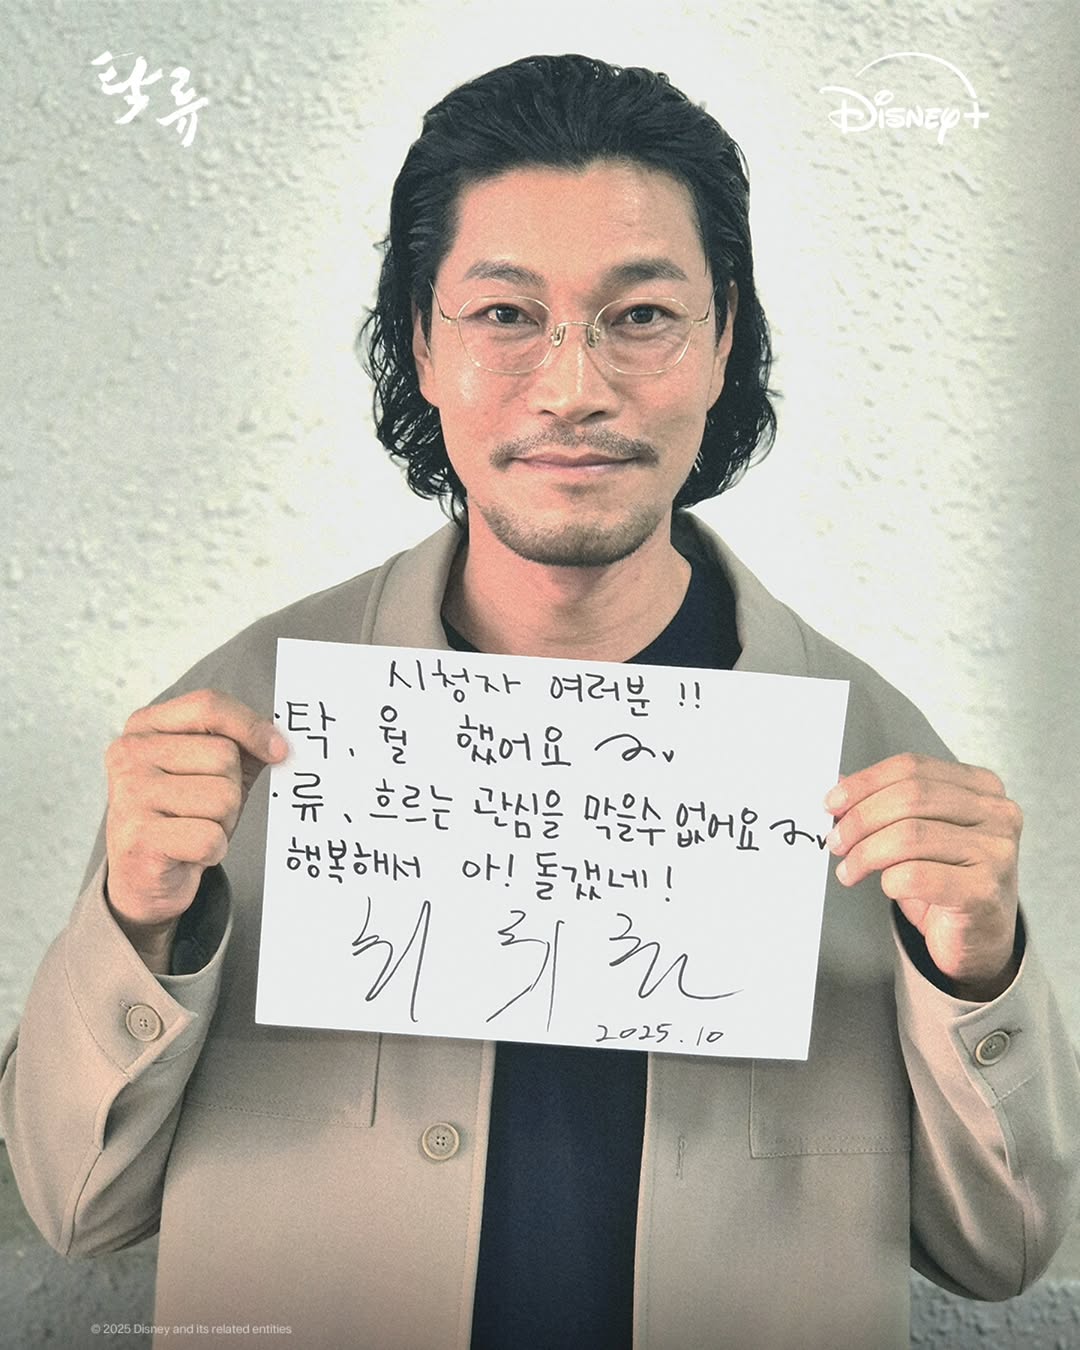 탁류
Disney+
시청자 여러분 !!
·탁, 월 했어요
·류, 흐르는 관심을 막을수 없어요
행복해서 아! 돌갰네!
2025.10
© 2025 Disney and its related entities